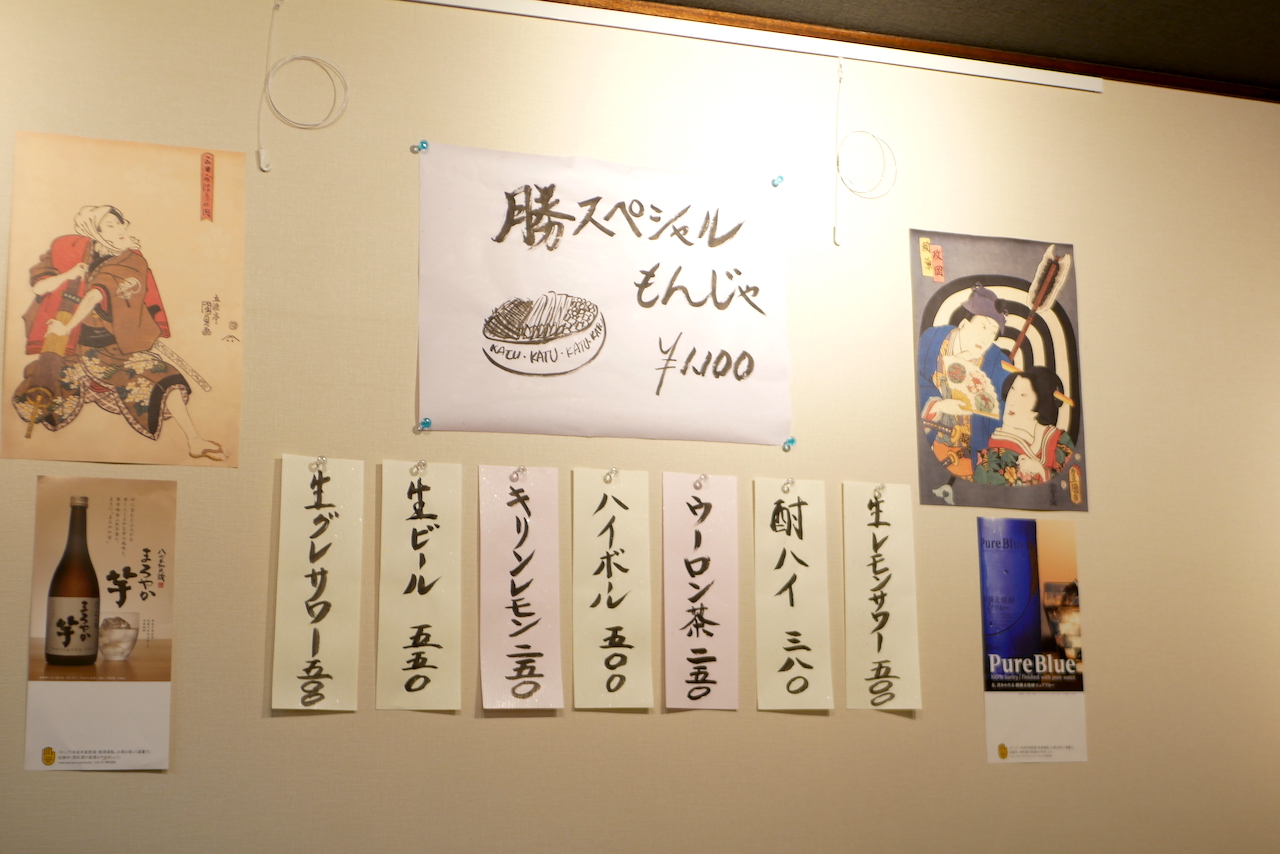 勝スペシャル
もんじゃ
¥1,100
KATU・KATU・KATU
生グレサワー 五〇〇
生ビール 五五〇
キリンレモン 二五〇
ハイボール 五〇〇
ウーロン茶 二五〇
酎ハイ 三八〇
生レモンサワー 五〇〇
まろやか
芋
まろやか
芋
Pure Blue
PureBlue
100% barley / finished with pure water